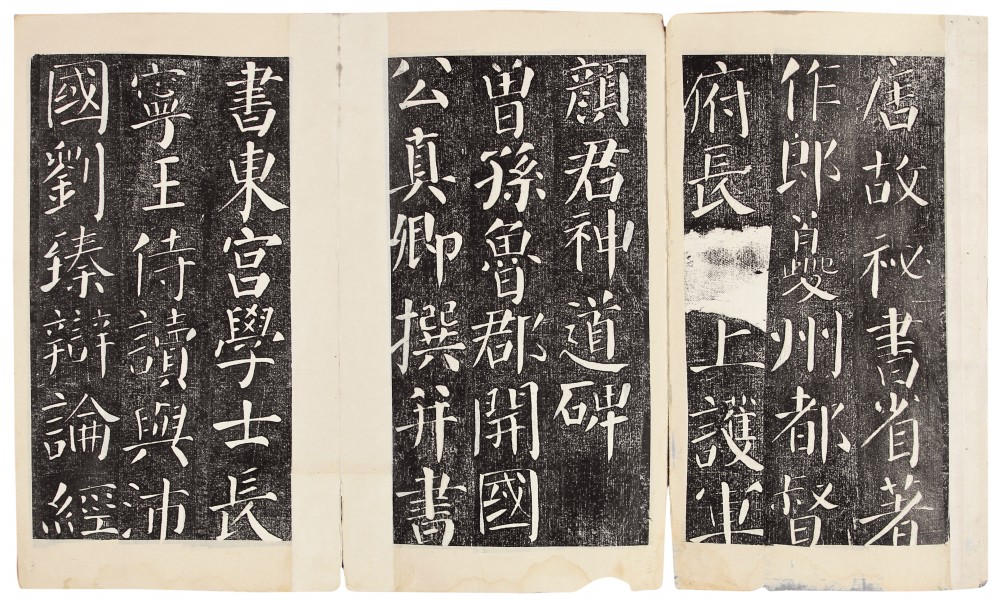 唐故祕書省著
作郎夔州都督
府長 上護軍
顏君神道碑
曾孫魯郡開國
公真卿撰并書
書東宮學士長
寧王侍讀與沛
國劉臻辯論經